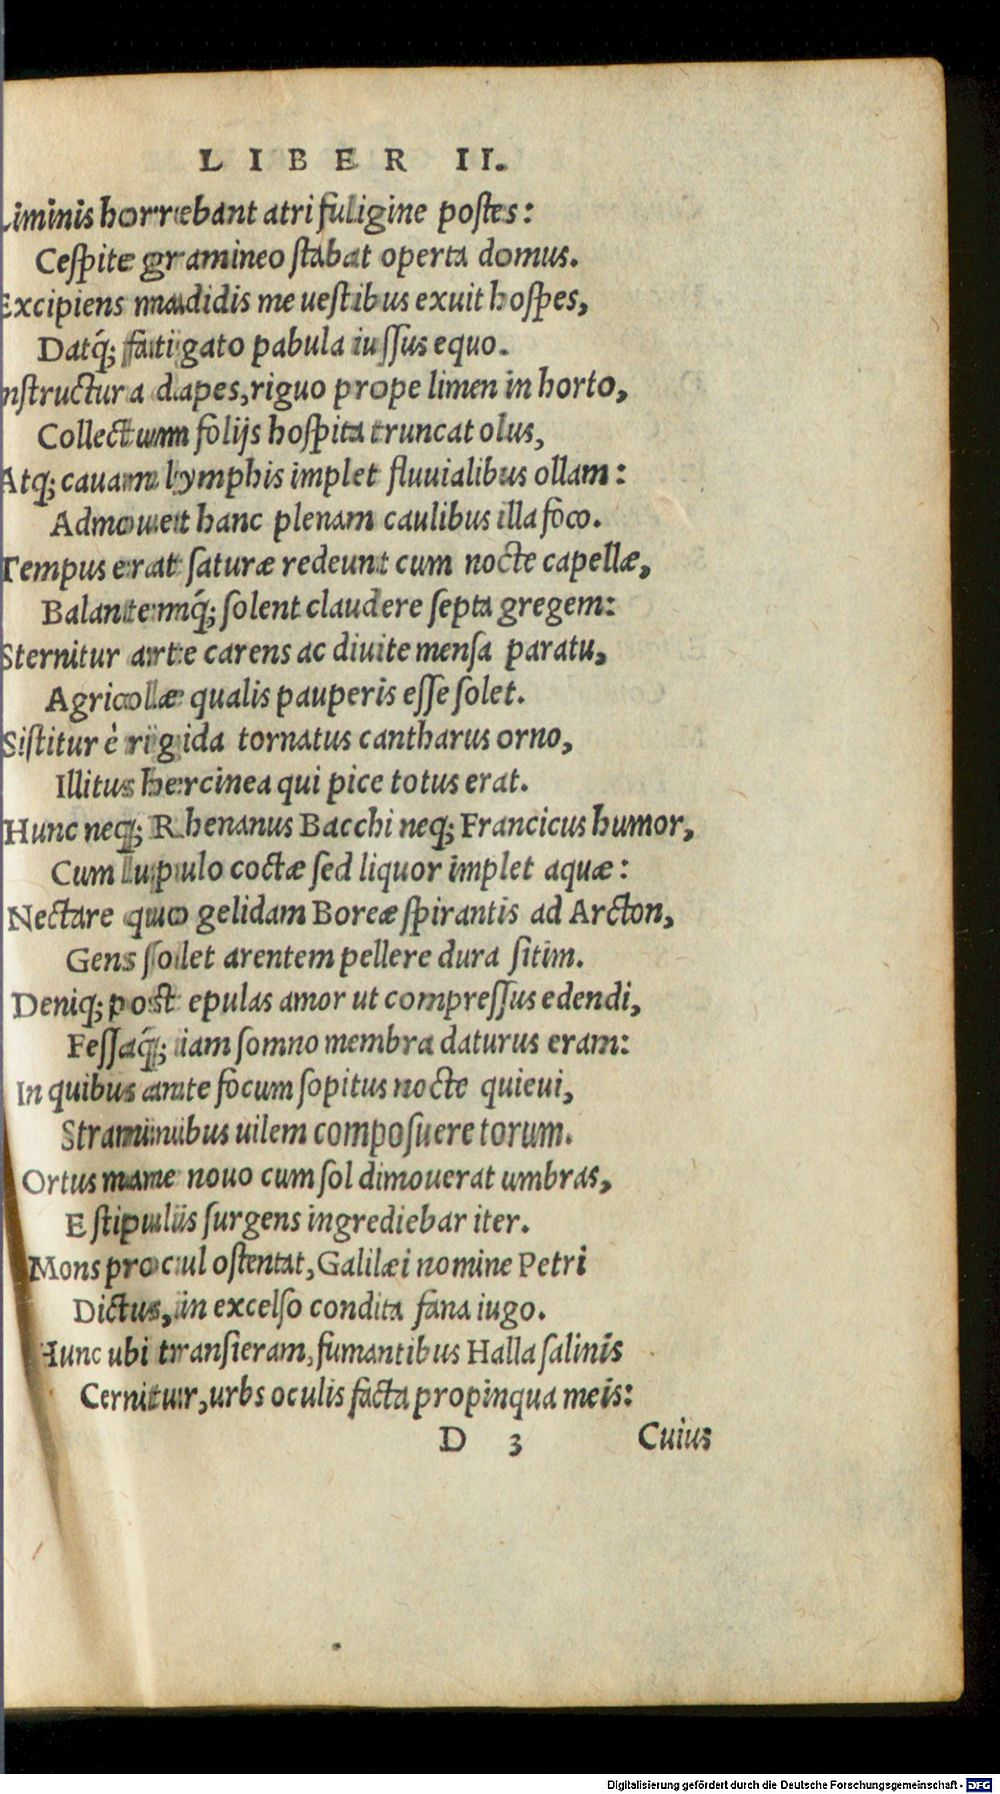 LIBER II.
Liminis horrebant atri fuligine postes:
Cespite gramineo stabat operta domus.
Excipiens madidis me uestibus exuit hospes,
Datq́; fatigato pabula iussus equo.
Instructura dapes, riguo prope limen in horto,
Collectum folijs hospita truncat olus,
Atq; cauam lymphis implet fluuialibus ollam:
Admouet hanc plenam caulibus illa foco.
Tempus erat saturæ redeunt cum nocte capellæ,
Balantemq́; solent claudere septa gregem:
Sternitur arte carens ac diuite mensa paratu,
Agricolæ qualis pauperis esse solet.
Sistitur è rigida tornatus cantharus orno,
Illitus hercinea qui pice totus erat.
Hunc neq; Rhenanus Bacchi neq; Francicus humor,
Cum lupulo coctæ sed liquor implet aquæ:
Nectare quo gelidam Boreæ spirantis ad Arcton,
Gens solet arentem pellere dura sitim.
Deniq; post epulas amor ut compressus edendi,
Fessaq́; iam somno membra daturus eram:
In quibus ante focum sopitus nocte quieui,
Straminibus uilem composuere torum.
Ortus mane nouo cum sol dimouerat umbras,
E stipulis surgens ingrediebar iter.
Mons procul ostentat, Galilæi nomine Petri
Dictus, in excelso condita fana iugo.
Hunc ubi transieram, fumantibus Halla salinis
Cernitur, urbs oculis facta propinqua meis:
D 3 Cuius
Digitalisierung gefördert durch die Deutsche Forschungsgemeinschaft - DFG